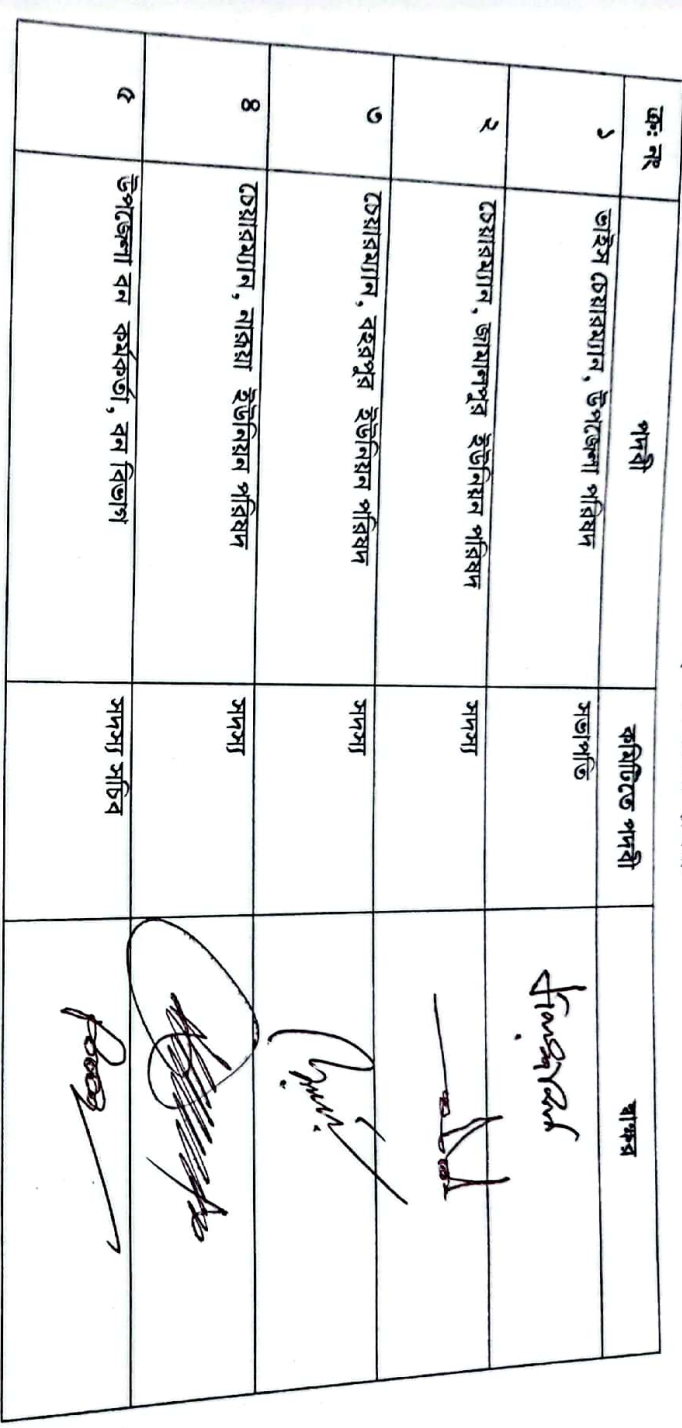 ক্রঃ নং পদবী কমিটিতে পদবী স্বাক্ষর
১ ভাইস চেয়ারম্যান, উপজেলা পরিষদ সভাপতি
২ চেয়ারম্যান, জামালপুর ইউনিয়ন পরিষদ সদস্য
৩ চেয়ারম্যান, বহরপুর ইউনিয়ন পরিষদ সদস্য
৪ চেয়ারম্যান, নারুয়া ইউনিয়ন পরিষদ সদস্য
৫ উপজেলা বন কর্মকর্তা, বন বিভাগ সদস্য সচিব